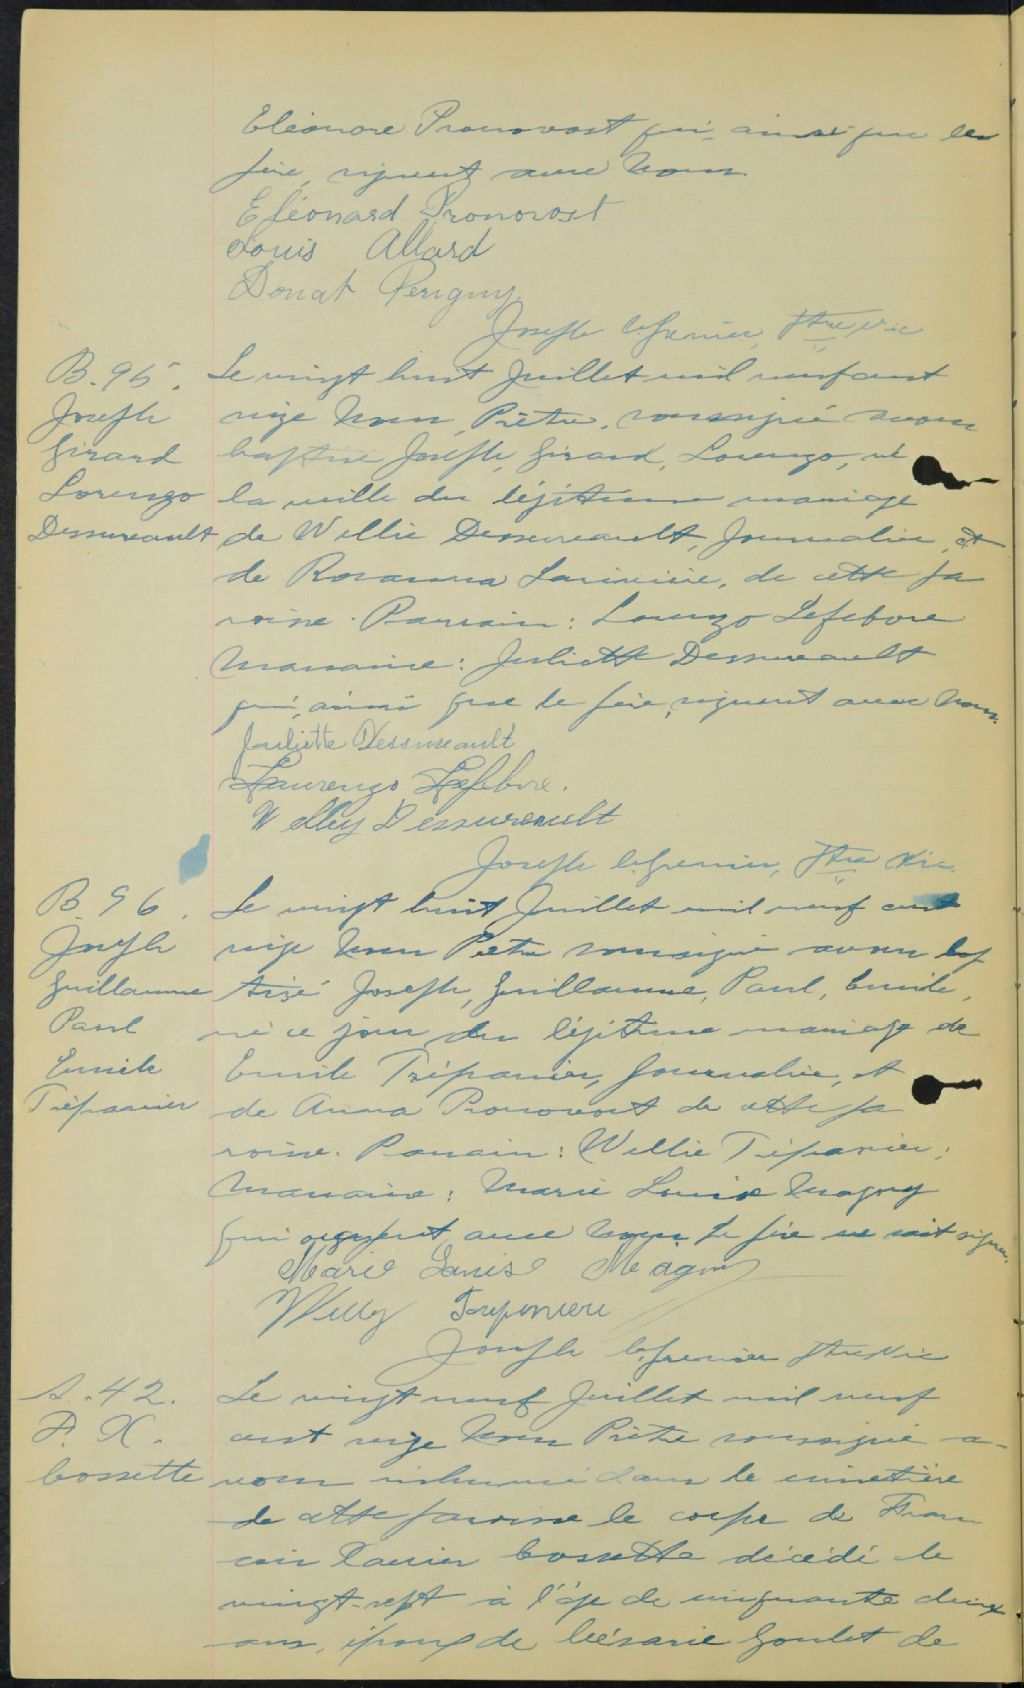 Eléonore Pronovost qui, ainsi que le
père, signent avec Nous
Eléonard Pronovost
Louis Allard
Donat Perigny
Joseph Grenier, Ptre Vic
B. 95.
Joseph
Girard
Lorenzo
Dessureault
Le vingt huit Juillet mil neuf cent
seize Nous, Prêtre, soussigné avons
baptisé Joseph, Girard, Lorenzo, né
la veille du légitime mariage
de Willie Dessureault, Journalier, et
de Rosanna Larivière, de cette pa
roisse. Parrain: Lorenzo Lefebvre
Marraine: Juliette Dessureault
qui, ainsi que le père, signent avec Nous.
Juliette Dessureault
Laurenzo Lefebvre.
Welley Dessureault
Joseph Grenier, Ptre Vic.
B. 96.
Joseph
Guillaume
Paul
Emile
Trépanier
Le vingt huit Juillet mil neuf cent
seize Nous Prêtre soussigné avons bap
tisé Joseph, Guillaume, Paul, Emile,
né ce jour du légitime mariage de
Emile Trépanier, Journalier, et
de Anna Pronovost de cette pa
roisse. Parrain: Willie Trépanier;
Marraine: Marie Louise Magny
qui signent avec Nous. Le père ne sait signer.
Marie Louise Magny
Willy
Joseph Grenier Ptre Vic
S. 42.
F. X.
Cossette
Le vingt neuf Juillet mil neuf
cent seize Nous Prêtre soussigné a-
vons inhumé dans le cimetière
de cette paroisse le corps de Fran
cois Xavier Cossette décédé le
vingt-sept à l'âge de cinquante deux
ans, époux de Césarie Goulet de